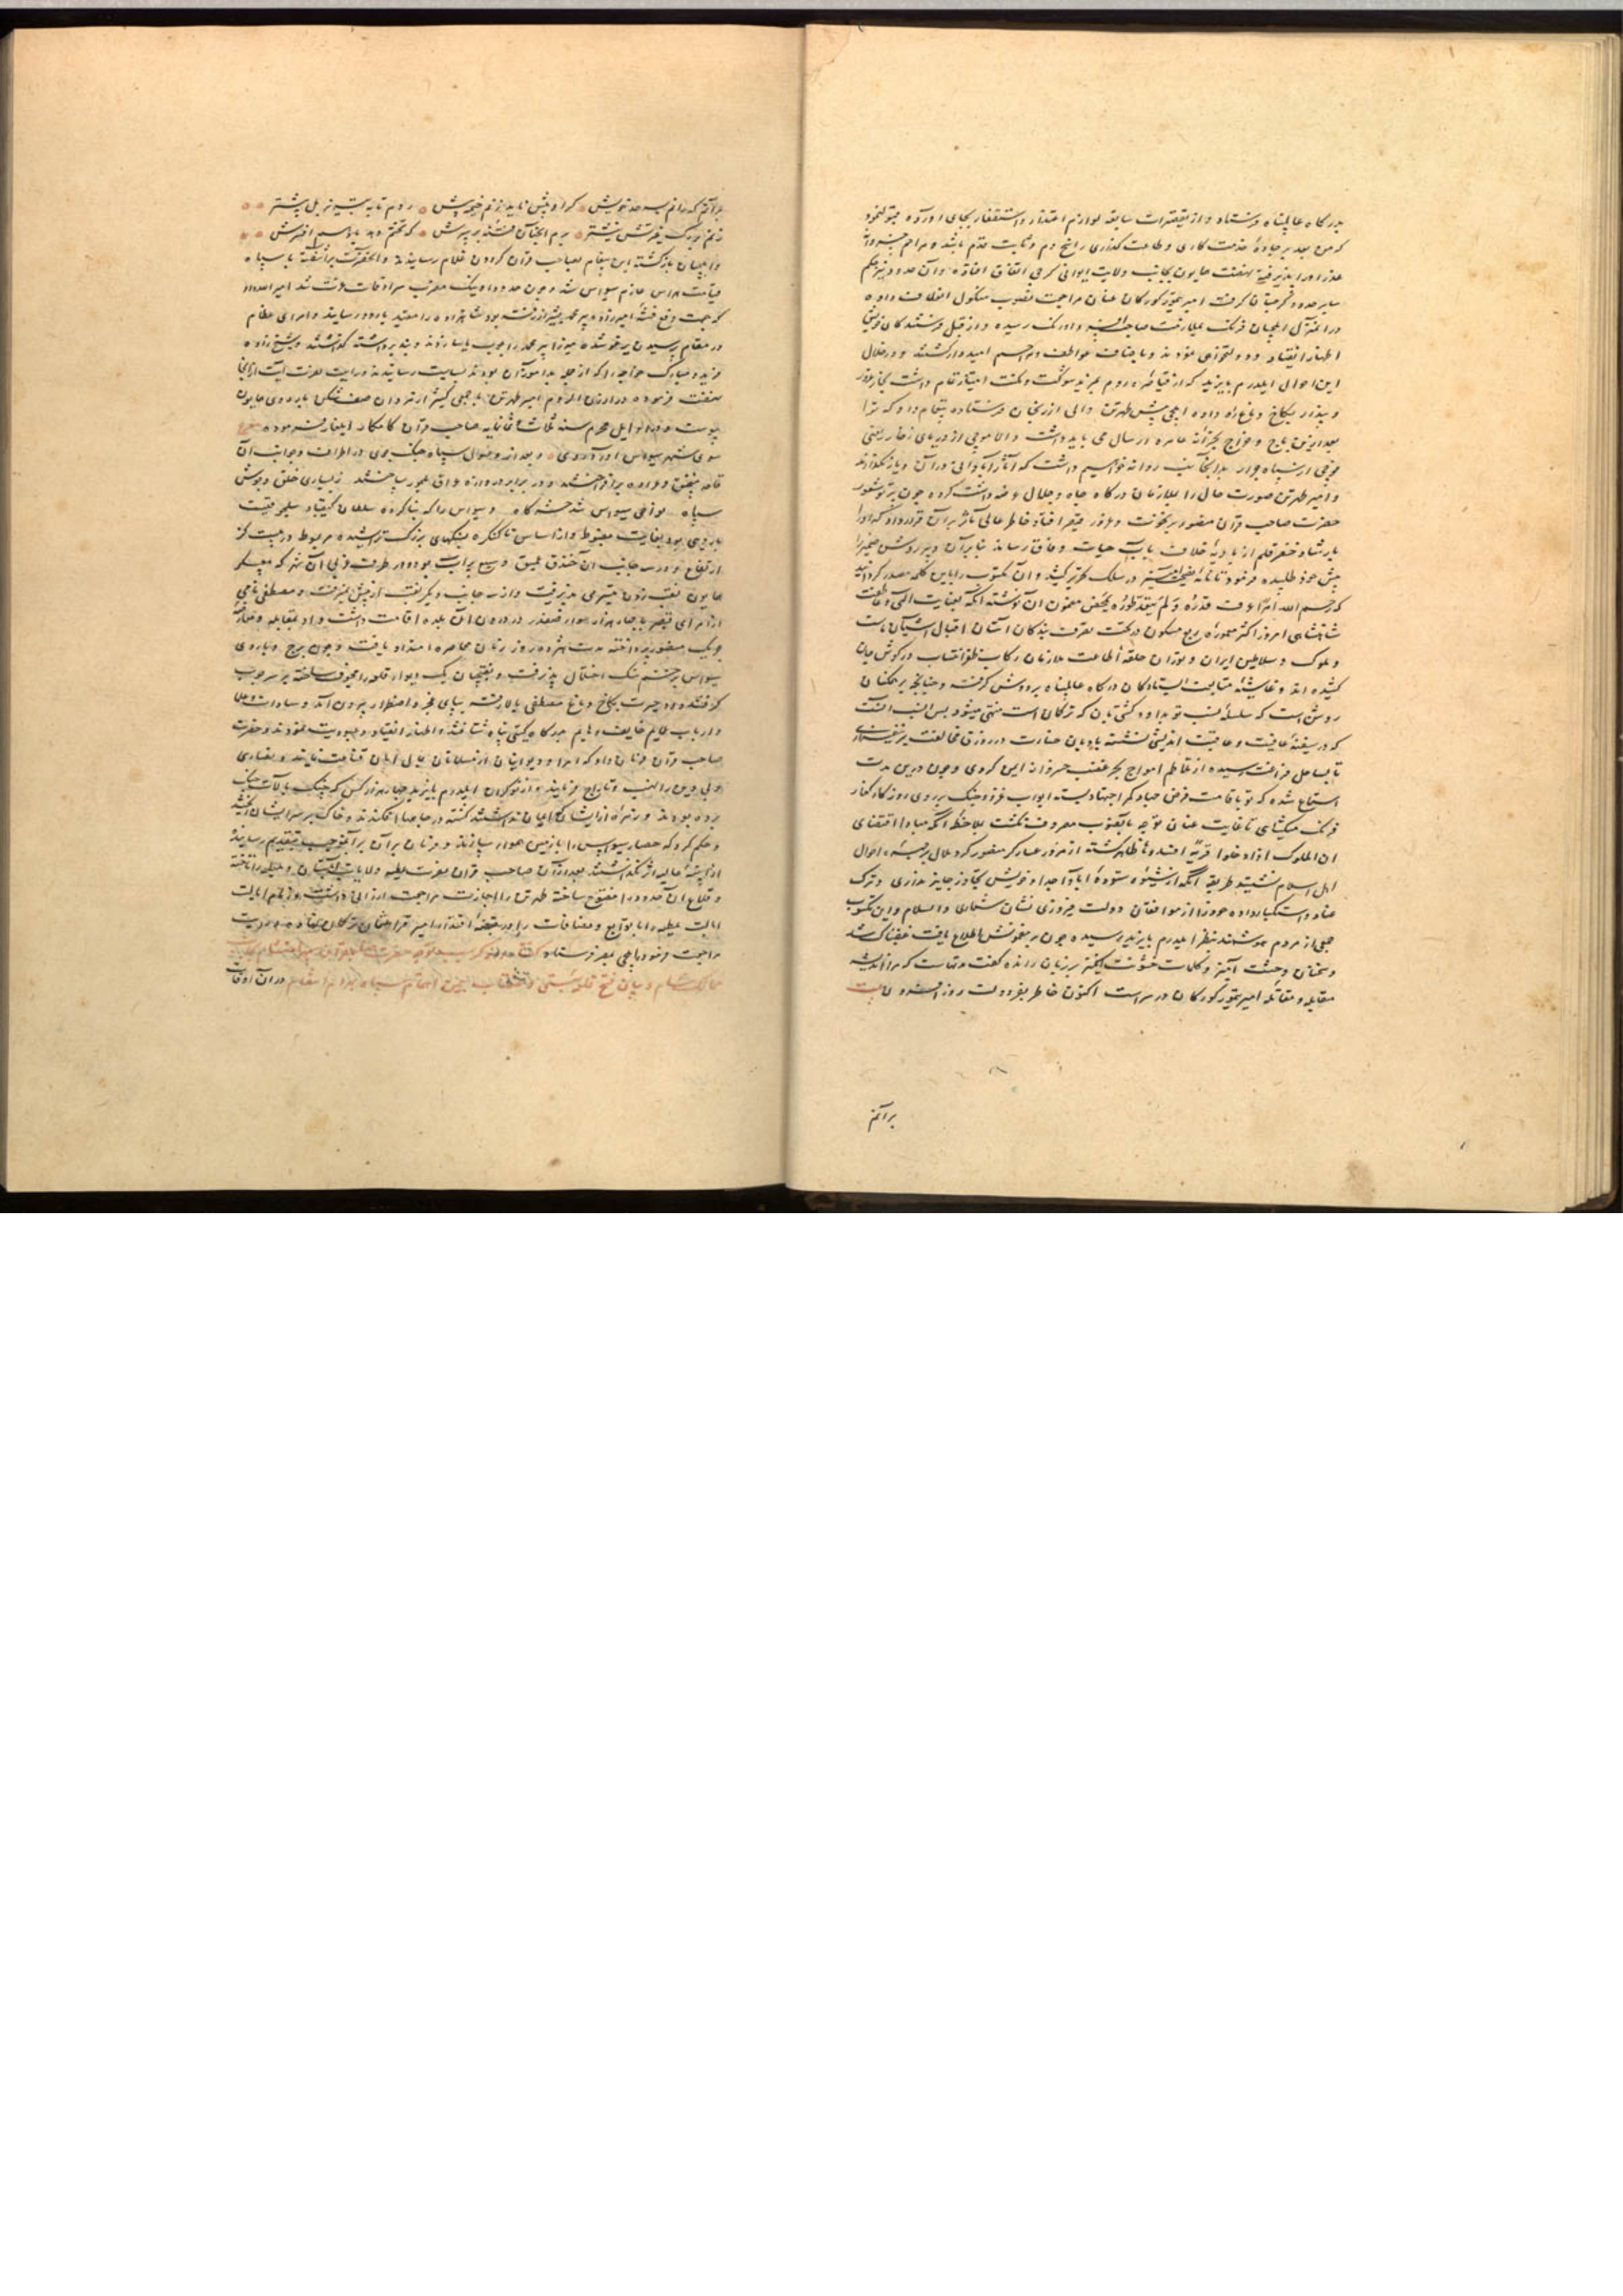 بدرکاه عالمپناه فرستاد و از تقصیرات سابقه لوازم اعتذار و استغفار بجای آورده
که من بعد بر جادهٔ خدمت کاری و طاعت کذاری راسخ دم و ثابت قدم باشد و مراحم خسروانه
عذر او را پذیرفته نهضت همایون بجانب ولایت ایوانی کرجی اتفاق افتاد و آن حدود نیز حکم
سایر حدود کرجستان کرفت امیر تیمور کورکان عنان مراجعت بصوب منکول انعطاف داده
در آن منزل ایلچیان فرنک بملازمت صاحب قران رسیده و از قبل فرستندکان خویش
اظهار انقیاد و دولتخواهی نمودند و باصناف عواطف و مراحم امیدوار کشتند و در خلال
این احوال ایلدرم بایزید که از قیاصرهٔ روم بمزید شوکت و مکنت امتیاز تمام داشت
و پندار بکاخ دماغ راه داده ایلچی پیش طهرتن والی ارزنجان فرستاده پیغام داد که ترا
بعد ازین باج و خراج بخزانهٔ عامره ارسال می باید داشت والا موجی از دریای زخار یعنی
فوجی از سپاه جرار بدانجانب روانه خواهیم داشت که آثار آبادانی در آن دیار نکذارند
و امیر طهرتن صورت حال را بملازمان درکاه جاه و جلال عرضه داشت کرده چون بر
حضرت صاحب قران منصور نخوت و غرور قیصر افتاد خاطر عالی ماثر بر آن قرار داد که او را
بارشاد خضر قلم از بادیهٔ خلاف بآب حیات وفاق رساند بنابر آن دبیر روشن ضمیر را
پیش خود طلبیده فرمود تا نامهٔ نصیحت آمیز در سلک تحریر کشید و آن مکتوب را باین کلمه مصدر کردانید
که رحم الله امرأ عرف قدره و لم یتعد طوره ملخص مضمون آن نوشته آنکه بعنایت الهی و عاطفت
شاهنشاهی امروز اکثر معمورهٔ ربع مسکون در تحت تصرف بندکان آستان اقبال آشیان ماست
و ملوک و سلاطین ایران و توران حلقهٔ اطاعت ملازمان رکاب ظفر انتساب در کوش جان
کشیده اند و غاشیهٔ متابعت ایستادکان درکاه عالمپناه بر دوش کرفته و چنانچه بر همکنان
روشن است که سلسلهٔ نسب تو بدان کشتیبان که ترکمان است منتهی میشود پس انسب آنست
که در سفینهٔ عافیت و عاقبت اندیشی نشسته بادبان جسارت در زورق مخالفت برنیفرازی
تا بساحل فراغت رسیده از تلاطم امواج بحر غضب خسروانه ایمن کردی و چون درین مدت
استماع شده که تو باقامت فرض جهاد کمر اجتهاد بسته ابواب غزو و جنک بر روی روزکار کفار
فرنک میکشای تا غایت عنان توجه بآنصوب معروف نکشت بملاحظه آنکه مبادا بمقتضای
ان الملوک اذا دخلوا قریة افسدوها ظاهر کشته از مرور عساکر منصور کرد ملال بر جهرهٔ احوال
اهل اسلام نشیند طریقه آنکه از شیوهٔ ستودهٔ آبا و اجداد خویش تجاوز جایز نداری و ترک
عناد و استکبار داده خود را از موافقان دولت فیروزی نشان شماری والسلام و این مکتوب
جمعی از مردم هوشمند بنظر ایلدرم بایزید رسیده چون بر مضمونش اطلاع یافت غضبناک شد
و سخنان وحشت آمیز و کلمات خشونت انکیز بر زبان رانده کفت مدتیست که مرا اندیشهٔ
مقابله و مقاتلهٔ امیر تیمور کورکان در سر است اکنون خاطر بفر دولت روز افزون بیت
بر آنم
بر آنم که رانم بسرحد خویش کر او پیش ناید نهم پیش روم تا به تبریز بل پیشتر
زنم نوک بیشتر برم آنچنان فتنه که تختم دهد یا
و ایلچیان بازکشته این پیغام بصاحب قران کردون غلام رسانیدند و آنحضرت برآشفته با سپاه
قیامت هراس عازم سیواس شد و چون حدود اونیک مضرب سرادقات عزت شد امیر الله داد
که بجهت دفع فتنهٔ امیرزاده پیر محمد بشیراز رفته بود شاهزاده را مقید باردو رسانید و امرای عظام
در مقام پرسیدن یرغو شده میرزا پیر محمد را چوب یاسا زدند و بند برداشته کذاشتند و شیخ زاده
فرید و مبارک خواجه را که از جمله بدآموزان بودند بسیاست رسانیدند و رایت نصرت آیت از آنجا
نهضت فرموده در ارزن الروم امیر طهرتن با جمعی کثیر از مردان صف شکن باردوی همایون
پیوست و در اوایل محرم سنه ثلاث و ثمانمایه صاحب قران کامکار ایلغار فرموده
سوی شهر سیواس آورد روی و بعد از وصول سپاه جنک جوی در اطراف و جوانب آن
قلعه منجنیق و عراده برافراختند و در برابر دروازهٔ عراق ملجور ساختند ز بسیاری خلق و جوش
سپاه هوای سیواس شد و سیواس را که بنا کرده سلطان کیقباد سلجوقیست
باروی بود بغایت مضبوط و از اساس تا کنکره بسنکهای بزرک تراشیده مربوط در بیست کز
ارتفاع و در سه جانب آن خندق عمیق وسیع پر آب بود و در طرف غربی آن شهر که معسکر
همایون نقب زدن میسر می پذیرفت و از سه جانب دیکر نقب از پیش نمیرفت و مصطفی نامی
از امرای قیصر با چهار هزار سوار صفدر در درون آن بلده اقامت داشت و او بمقابله و مقاتله
مدت هژده روز زمان محاصره امتداد یافت و چون برج و باروی
سیواس بزخم سنک اختلال پذیرفت و نقبچیان یک دیوار قلعه را مجوف ساخته بر سر چوب
کرفتند دود حیرت بکاخ دماغ مصطفی بالا رفته بپای عجز و اضطرار بیرون آمد و سادات و علما
و ارباب عمایم خایف و هایم بدرکاه کیتی پناه شتافتند و اظهار انقیاد و عبودیت نمودند و حضرت
صاحب قران فرمان داد که امرا و دیوانیان از مسلمانان بمال امان قناعت نمایند و نصاری
و بی دین را نهب و تاراج فرمایند و از نوکران ایلدرم بایزید چهار هزار کس که بجنک
برده بودند و زمرهٔ از ایشان کشته در چاهها افکندند و خاک بر سر ایشان ریختند
و حکم کرد که حصار سیواس را با زمین هموار سازند و فرمان بران بر آنموجب بتقدیم رسانیدند
از ابنیهٔ عالیه اثر نکذاشتند بعد از آن صاحب قران بصوب ملطیه و ولایات
و قلاع آن حدود را مفتوح ساخته طهرتن را اجازت مراجعت ارزانی داشت و زمام ایالت
ملطیه را با توابع و مضافات در قبضهٔ اقتدار امیر قرا عثمان ترکمان نهاده
مراجعت فرمود و ایلچی بمصر فرستاد
ممالک شام و بیان فتح قلعه در آن اوقات